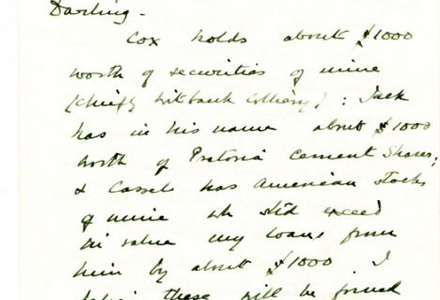 Darling -
Cox holds about $1000
worth of securities of mine
(chiefly Witbank Colliery) : Jack
has in his name about $1000
worth of Pretoria Cement Shares,
& Cassel has American Stocks
of mine wh shd exceed
in value my loans from
him by about $1000. I
these will be found